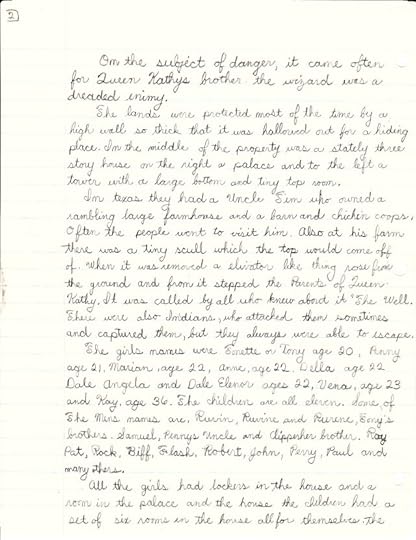 2
On the subject of danger, it came often
for Queen Kathys brother the wizard was a
dreaded enimy.
The lands were protected most of the time by a
high wall so thick that it was hallowed out for a hiding
place. In the middle of the property was a stately three
story house on the right a palace and to the left a
tower with a large bottom and tiny top room.
In texas they had a Uncle Sim who owned a
rambling large farmhouse and a barn and chichen coops.
Often the people went to visit him. Also at his farm
there was a tiny scull which the top would come off
of. When it was removed a elivator like thing rose from
the ground and from it stepped the Parents of Queen
Kathy. It was called by all who knew about it "The Well.
There were also Indians, who attached them sometimes
and captured them, but they always were able to escape.
The girls names were Emette or Tony age 20, Penny
age 21, Marian, age 22, Anne, age 22, Della age 22
Dale Angela and Dale Elenor ages 22, Vena, age 23
and Kay, age 36. The children are all eleven. Some of
The Mens names are, Ruvin, Ruvine and Rurene, Tony's
brothers. Samuel, Pennys Uncle and Clippesher brother. Ray
Pat, Rock, Biff, Flash, Robert, John, Perry, Paul and
many others.
All the girls had lockers in the house and a
room in the palace and the house the children had a
set of six rooms in the house all for themselves. the